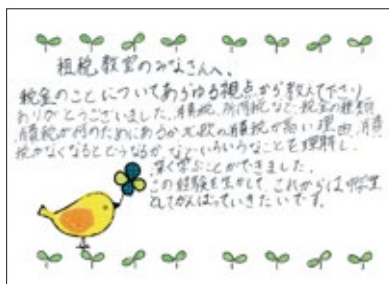 租税教室のみなさんへ。
税金のことについてあらゆる視点から教えて下さり
ありがとうございました。消費税、所得税など、税金の種類
消費税が何のためにあるか、の消費税が高い理由、消費
税がなくなるとどうなるかなどいろいろなことを理解し、
深く学ぶことができました。
この経験を生かして、これからは中学生
としてがんばっていきたいです。